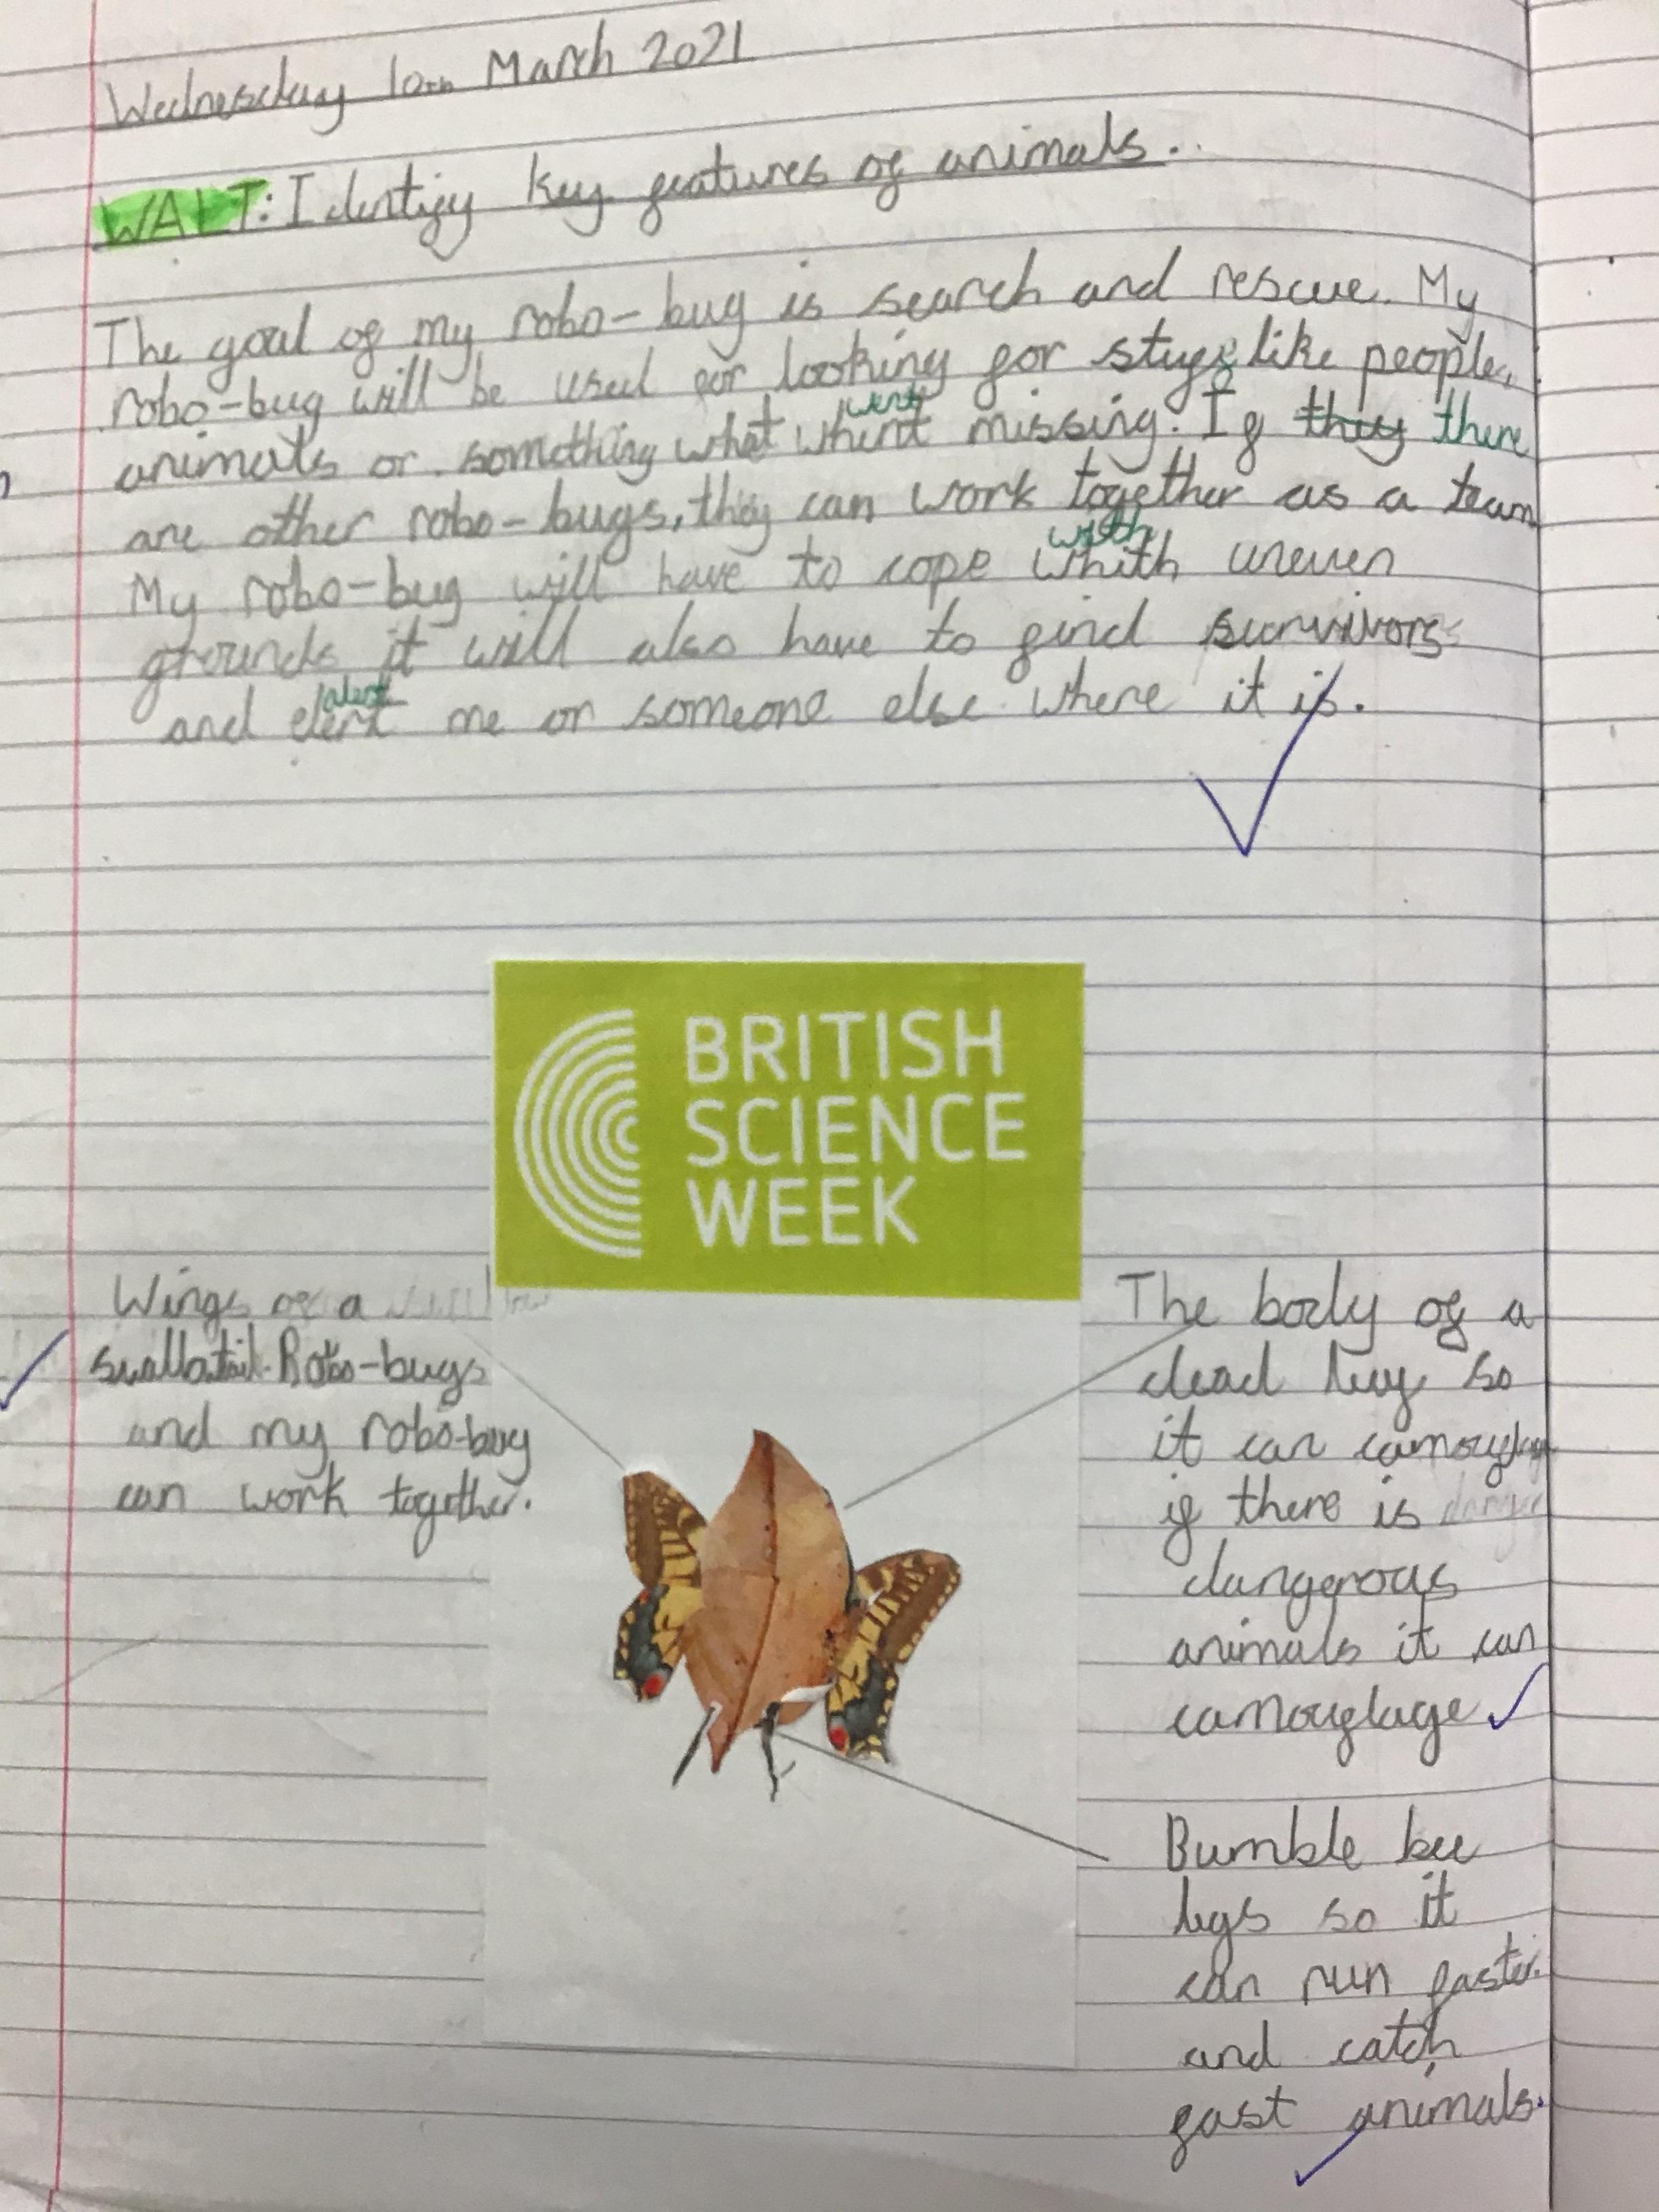 Wednesday 10th March 2021
WALT: Identify key features of animals.
The goal of my robo-bug is search and rescue. My
robo-bug will be used for looking for stuff like people,
went
animals or something what whent missing. If they there
are other robo-bugs, they can work together as a team
with
My robo-bug will have to cope whith uneven
grounds it will also have to find survivors
alert
and elert me or someone else where it is.
BRITISH
SCIENCE
WEEK
Wings of a
swallotail. Robo-bugs
and my robo-bug
can work together.
The body of a
dead leag so
it can camouflag
if there is danger
dangerous
animals it can
camouflage
Bumble bee
legs so it
can run faster
and catch
fast animals.